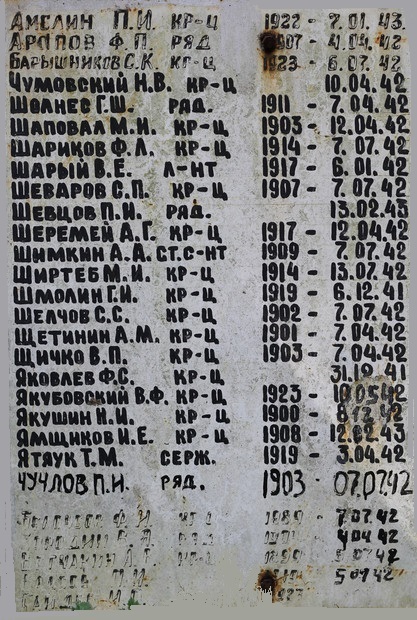 АМЕЛИН П.И. КР-Ц 1922 - 7.01.43
АРАПОВ Ф.П. РЯД 1907 - 4.04.42
БАРЫШНИКОВ С.К. КР-Ц 1923 - 6.07.42
ЧУМОВСКИЙ Н.В. КР-Ц 10.04.42
ШОЛНЕС Г.Ш. РЯД. 1911 - 7.04.42
ШАПОВАЛ М.Н. КР-Ц 1903 - 12.04.42
ШАРИКОВ Ф.Л. КР-Ц 1914 - 7.07.42
ШАРЫЙ В.Е. Л-НТ 1917 - 6.01.42
ШЕВАРОВ С.П. КР-Ц 1907 - 7.07.42
ШЕВЦОВ П.И. РЯД. 13.02.43
ШЕРЕМЕЙ А.Г. КР-Ц 1917 - 12.04.42
ШИМКИН А.Д. СТ.С-НТ 1909 - 7.07.42
ШИРТЕБ М.И. КР-Ц 1914 - 13.07.42
ШМОЛИН Г.И. КР-Ц 1919 - 6.12.41
ШЕЛЧОВ С.С. КР-Ц 1902 - 7.07.42
ЩЕТИНИН А.М. КР-Ц 1901 - 7.04.42
ЩИЧКО В.П. КР-Ц 1903 - 7.04.42
ЯКОВЛЕВ Ф.С. КР-Ц 31.12.41
ЯКУБОВСКИЙ В.Ф. КР-Ц 1923 - 10.05.42
ЯКУШИН Н.И. КР-Ц 1900 - 8.12.42
ЯМЩИКОВ И.Е. КР-Ц 1908 - 12.02.43
ЯТЯУК Т.М. СЕРЖ. 1919 - 3.04.42
ЧУЧЛОВ П.И. РЯД. 1903 - 07.07.42
7.07.42
4 04 42
5 09 42